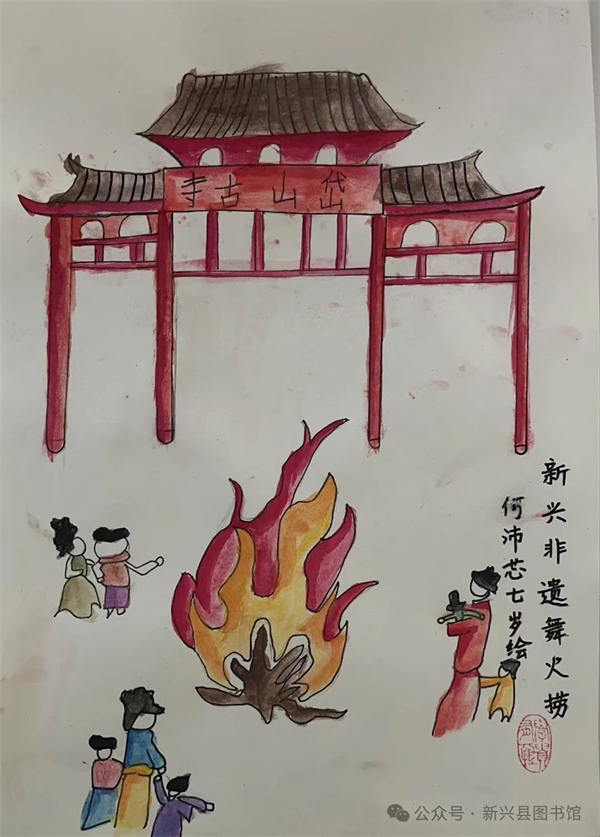 岱山古寺
新兴非遗舞火捞
何沛芯七岁绘
公众号 · 新兴县图书馆